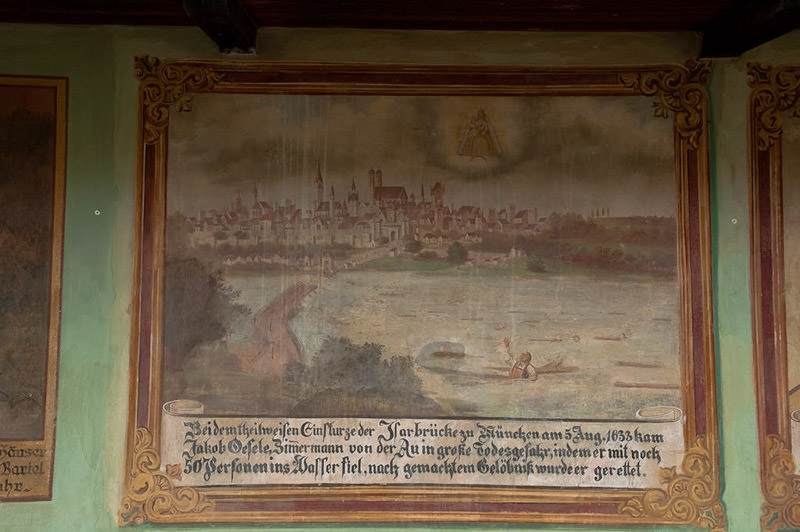 Bei dem theilweisen Einsturze der Isarbrücke zu München am 5 Aug. 1633 kam
Jakob Oesele, Zimermann von der Au in große Todesgefahr, indem er mit noch
50 Personen ins Wasser fiel, nach gemachtem Gelöbniß wurde er gerettet.
Bartel